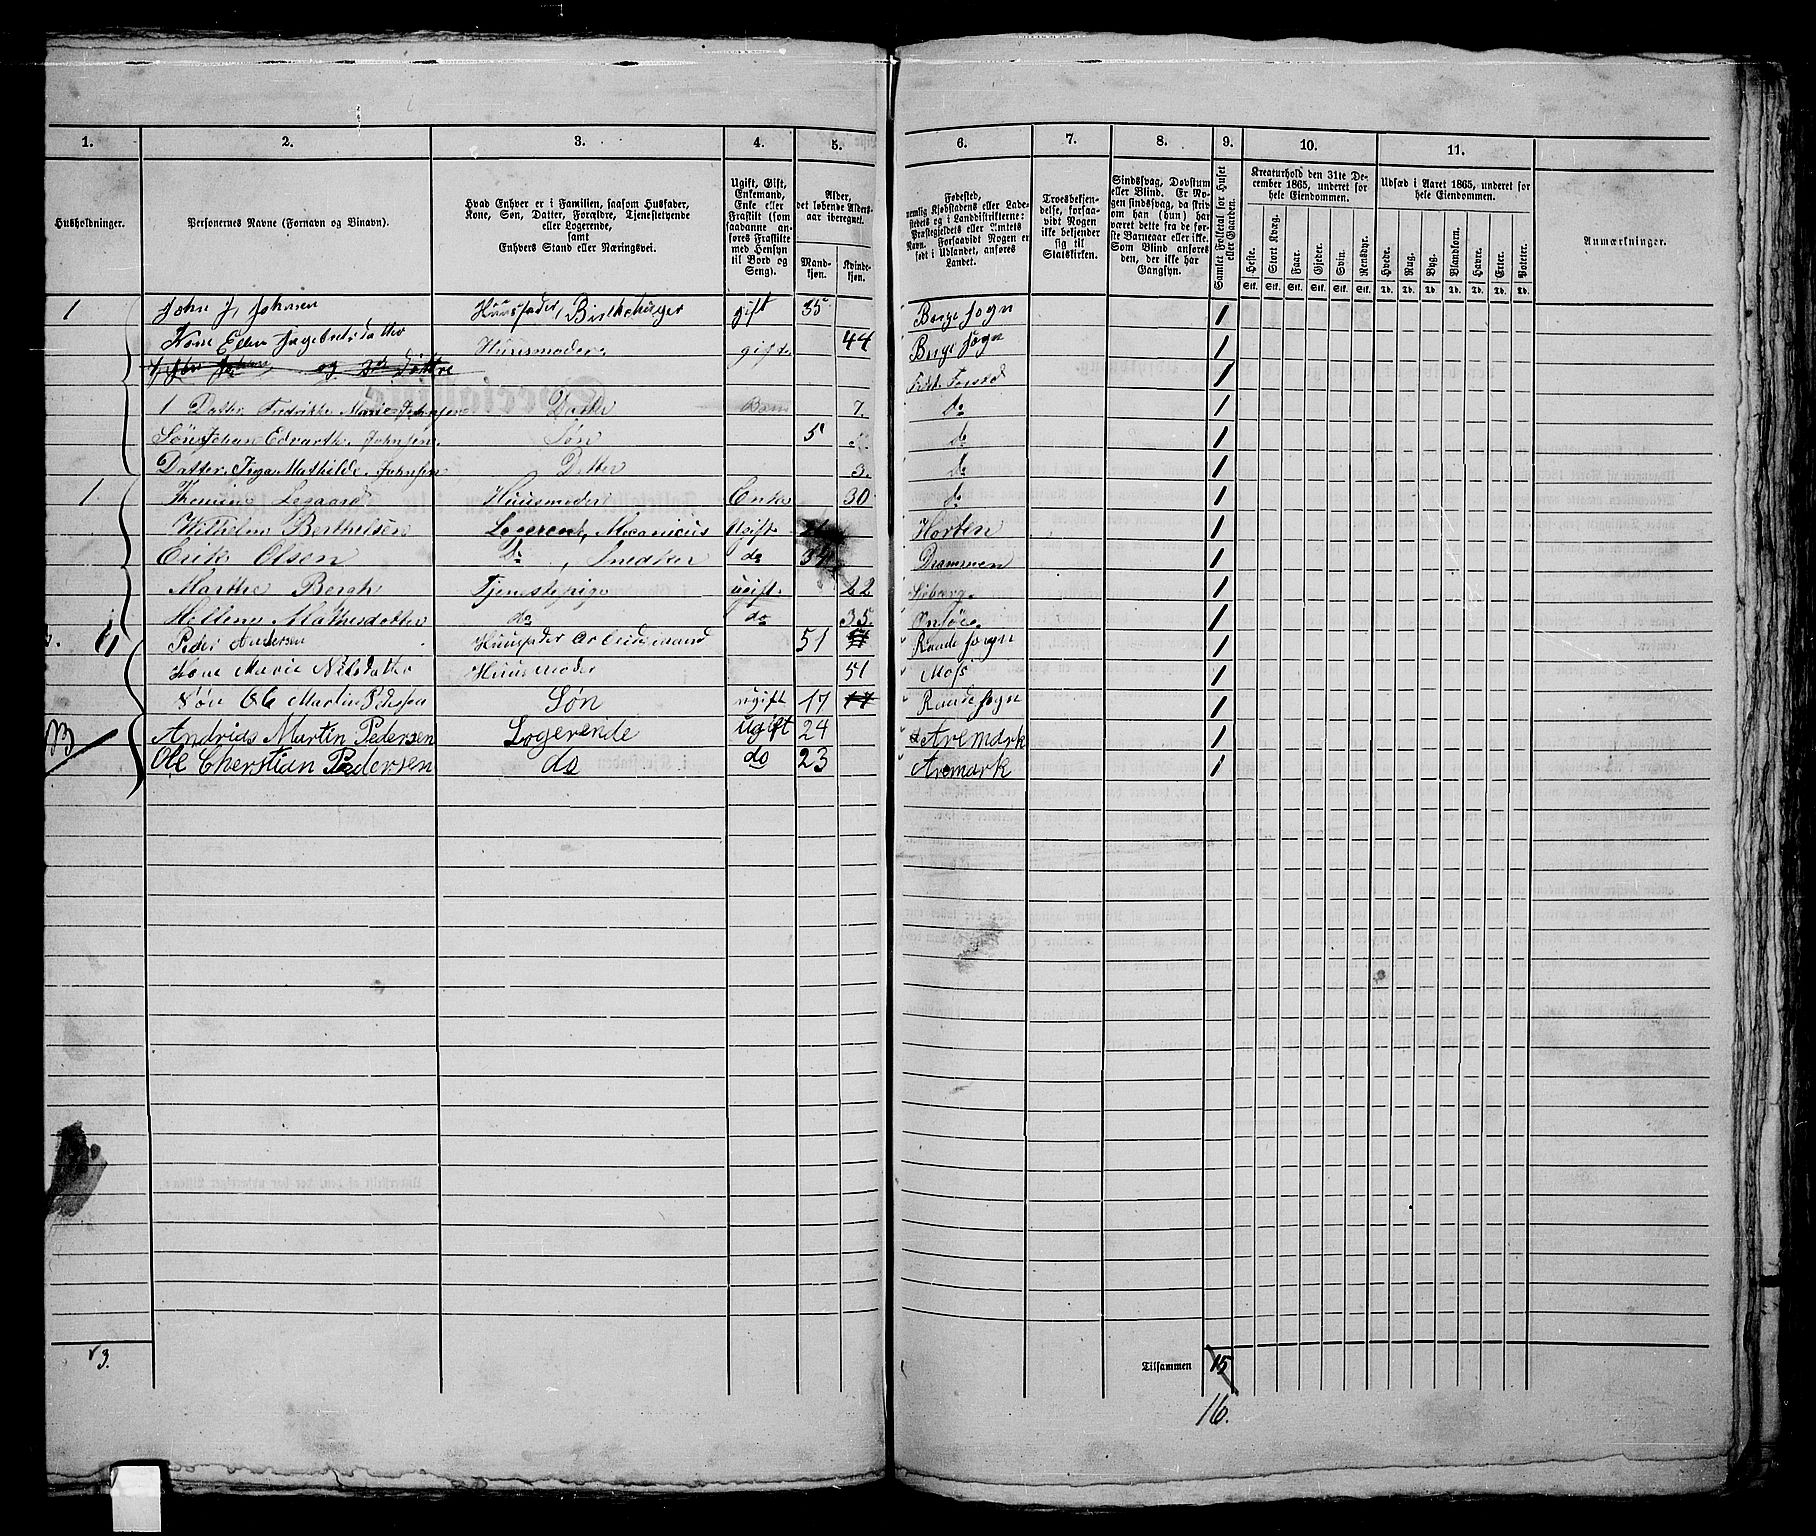 1. 2. 3. 4. 5. 6. 7. 8. 9. 10. 11.
Husholdninger.
Personernes Navne (Fornavn og Binavn).
Hvad Enhver er i Familien, saasom Husfader,
Kone, Søn, Datter, Forældre, Tjenestetyende
eller Logerende,
samt
Enhvers Stand eller Næringsvei.
Ugift, Gift,
Enkemand,
Enke eller
Fraskilt (som
saadanne an-
føres Fraskilte
med Hensyn
til Bord og
Seng).
Alder,
det løbende Alders-
aar iberegnet.
Mand-
kjøn.
Kvinde-
kjøn.
Fødested,
nemlig Kjøbstadens eller Lade-
stedets og i Landdistrikterne:
Præstegjeldets eller Amtets
Navn. Forsaavidt Nogen er
født i Udlandet, anføres
Landet.
Troesbekjen-
delse, forsaa-
vidt Nogen
ikke bekjender
sig til
Statskirken.
Sindssvag, Døvstum
eller Blind. Er No-
gen sindssvag, da skriv
om han (hun) har
været dette fra de før-
ste Barneaar eller ikke.
Som Blind anføres
den, der ikke har
Gangsyn.
Samlet Folketal for Huset
eller Gaarden.
Kreaturhold den 31te De-
cember 1865, underet for
hele Eiendommen.
Heste. Stort Kvæg. Faar. Gjeder. Svin. Rensdyr.
Stk. Stk. Stk. Stk. Stk. Stk.
Udsæd i Aaret 1865, underet for
hele Eiendommen.
Hvede. Rug. Byg. Blandkorn. Havre. Erter. Poteter.
Td. Td. Td. Td. Td. Td. Td.
Anmærkninger.
1 John J. Johnsen Huusfader, gift 35 Borge Sogn 1
Kone Ellen Huusmoder gift 44 Borge Sogn 1
og Døttre 1
1 Datter Fredrikke Marie Johnsen Datter Barn 7. do 1
Søn Johan Edvarth Johnsen Søn 5 do 1
Datter Inga Mathilde Johnsen Datter 3. do 1
1. Huusmoder Enke 30 do 1
Vilhelm Berthelsen Logerend, Mecanicus Ugift Horten 1
Erik Olsen Do, Snedker do 34 Drammen 1
Marthe Bergh Tjenestepige ugift 22 1
Hellene Mathesdatter do do 35. Onsøe 1
Peder Andersen Huusfader Arbeidsmand 51 Raade Sogn 1
Kone Marie Nilsdatter Huusmoder 51 Moss 1
Søn Ole Martin Pedersen Søn ugift 17 17 Raade Sogn 1
Andrias Martin Pedersen Logerende ugift 24 Aremark 1
Ole Cherstian Pedersen do do 23 Aremark 1
3.
Tilsammen 15
16.